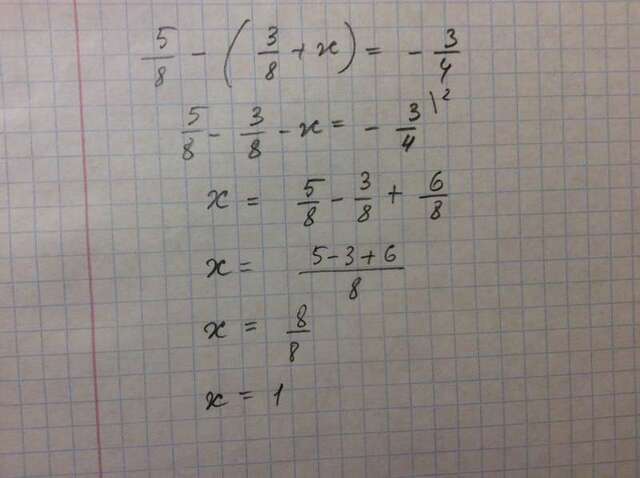 5/8 - (3/8 + x) = - 3/4
5/8 - 3/8 - x = - 3/4 |2
x = 5/8 - 3/8 + 6/8
x = (5-3+6)/8
x = 8/8
x = 1